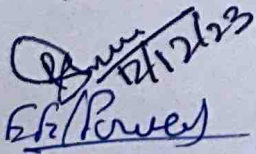 12/12/23
EE/Power